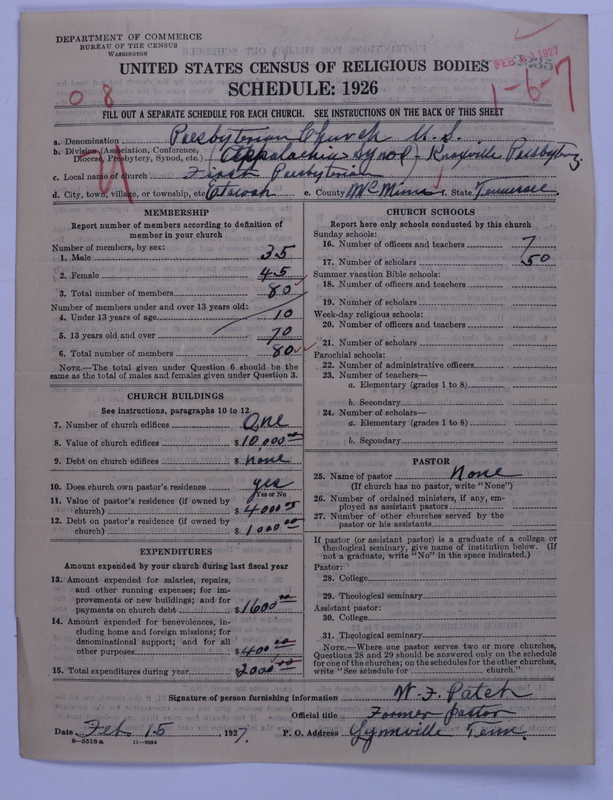 DEPARTMENT OF COMMERCE
BUREAU OF THE CENSUS
WASHINGTON
FEB 1927
UNITED STATES CENSUS OF RELIGIOUS BODIES
SCHEDULE: 1926
0 8
1-6-7
FILL OUT A SEPARATE SCHEDULE FOR EACH CHURCH. SEE INSTRUCTIONS ON THE BACK OF THIS SHEET
a. Denomination Presbyterian Church U. S.
b. Division (Association, Conference, Diocese, Presbytery, Synod, etc.) Appalachia Synod - Knoxville Presbytery
c. Local name of church First Presbyterian
d. City, town, village, or township, etc. Etowah e. County McMinn f. State Tennessee
MEMBERSHIP
Report number of members according to definition of member in your church
Number of members, by sex:
1. Male 35
2. Female 45
3. Total number of members 80
Number of members under and over 13 years old:
4. Under 13 years of age 10
5. 13 years old and over 70
6. Total number of members 80
NOTE.—The total given under Question 6 should be the same as the total of males and females given under Question 3.
CHURCH BUILDINGS
See instructions, paragraphs 10 to 12
7. Number of church edifices One
8. Value of church edifices $10,000 00
9. Debt on church edifices $ none
10. Does church own pastor's residence yes
Yes or No
11. Value of pastor's residence (if owned by church) $4000
12. Debt on pastor's residence (if owned by church) $1000 00
EXPENDITURES
Amount expended by your church during last fiscal year
13. Amount expended for salaries, repairs, and other running expenses; for improvements or new buildings; and for payments on church debt $1600 00
14. Amount expended for benevolences, including home and foreign missions; for denominational support; and for all other purposes $400 00
15. Total expenditures during year $2000 00
CHURCH SCHOOLS
Report here only schools conducted by this church
Sunday schools:
16. Number of officers and teachers 7
17. Number of scholars 50
Summer vacation Bible schools:
18. Number of officers and teachers
19. Number of scholars
Week-day religious schools:
20. Number of officers and teachers
21. Number of scholars
Parochial schools:
22. Number of administrative officers
23. Number of teachers—
a. Elementary (grades 1 to 8)
b. Secondary
24. Number of scholars—
a. Elementary (grades 1 to 8)
b. Secondary
PASTOR
25. Name of pastor None
(If church has no pastor, write "None")
26. Number of ordained ministers, if any, employed as assistant pastors
27. Number of other churches served by the pastor or his assistants
If pastor (or assistant pastor) is a graduate of a college or theological seminary, give name of institution below. (If not a graduate, write "No" in the space indicated.)
Pastor:
28. College
29. Theological seminary
Assistant pastor:
30. College
31. Theological seminary
NOTE.—Where one pastor serves two or more churches, Questions 28 and 29 should be answered only on the schedule for one of the churches; on the schedules for the other churches, write "See schedule for church."
Signature of person furnishing information W. F. Patch
Official title Former pastor
Date Feb 15, 1927. P. O. Address Lynnville Tenn.
8—5518 a 11—9654